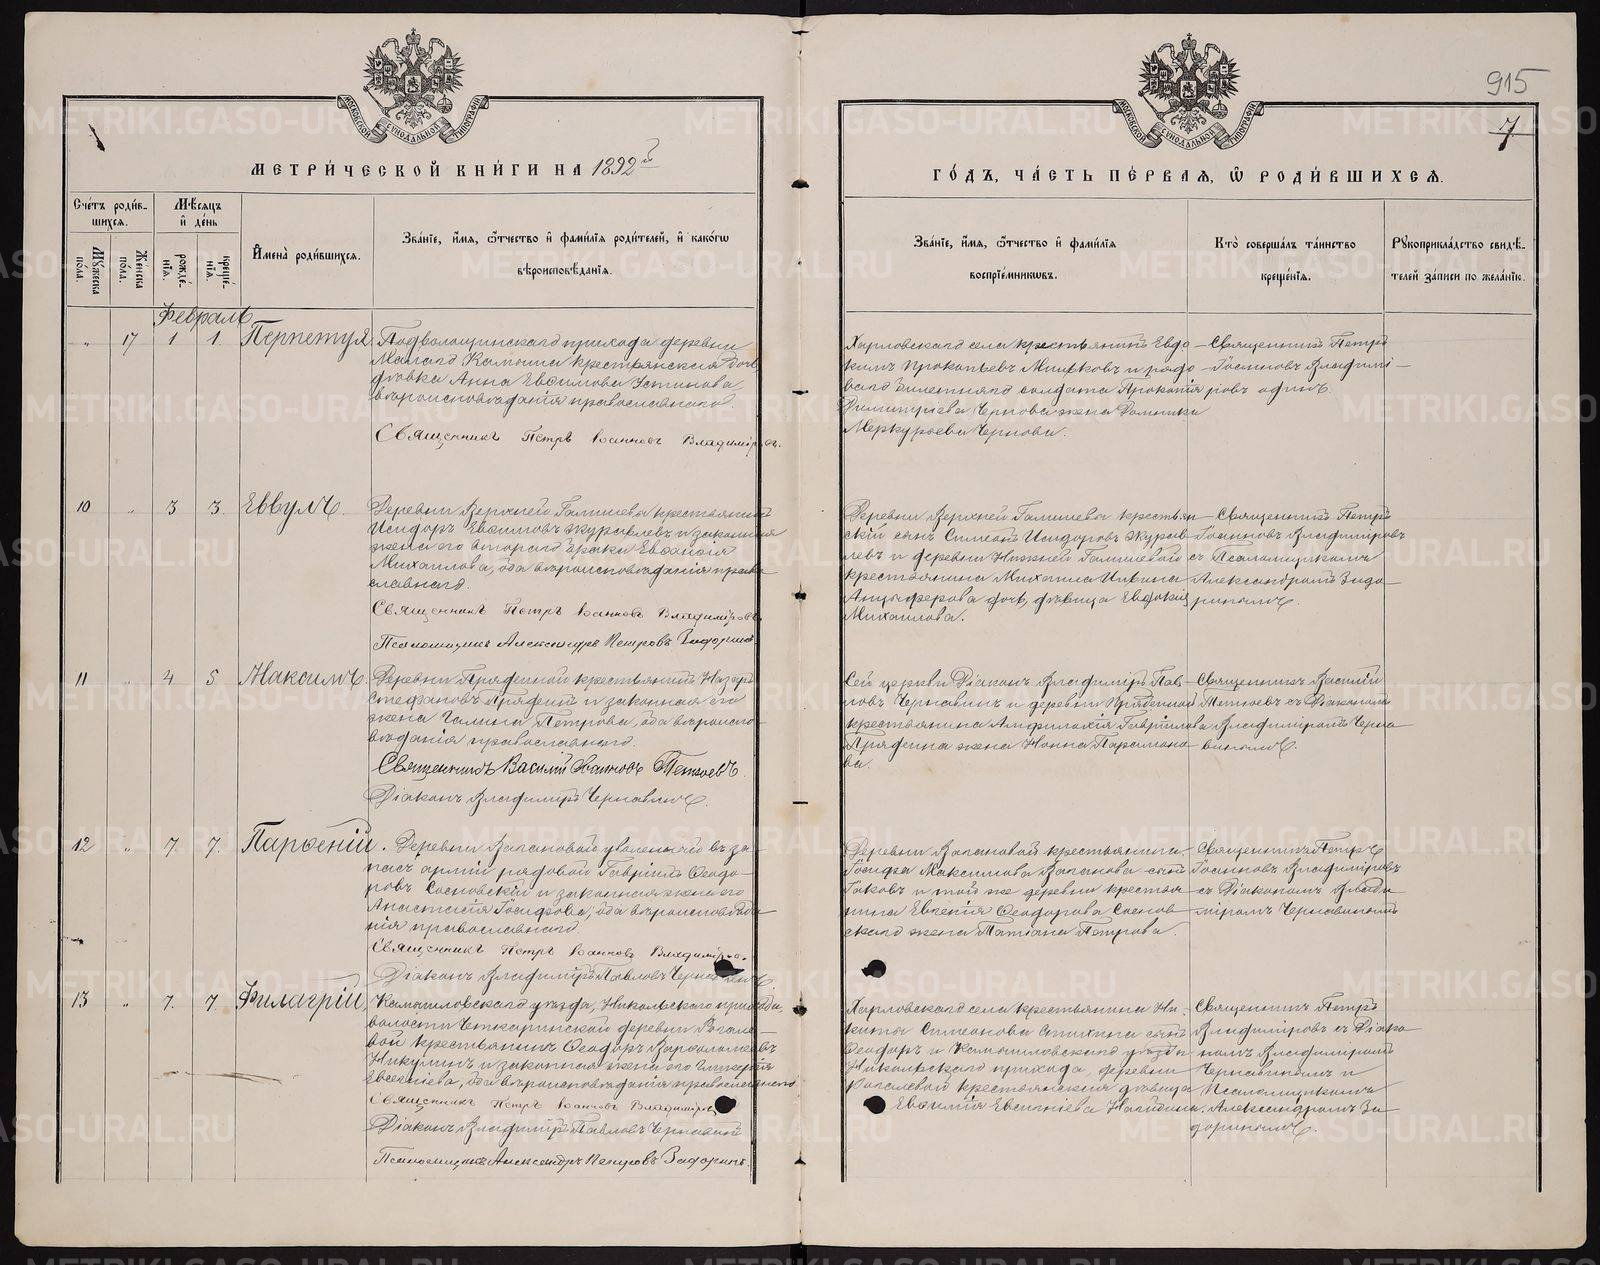 915
7
МЕТРИ́ЧЕСКОЙ КНИ́ГИ НА 1892 й
ГО́ДЪ, ЧА́СТЬ ПЕ́РВАЯ, Ѡ РОДИ́ВШИХСЯ.
Сче́тъ роди́в-
шихся.
Мѣсяцъ
и́ де́нь
Мꙋжеска
пола.
Же́нска
по́ла.
рожде́-
нїѧ.
креще́-
нїѧ.
И́мена̀ роди́вшихся.
Зва́нїе, и́мя, ѻ҆́тчество и҆ фами́лїя роди́телей, и҆ како́гѡ
вѣроисповѣ́данїя.
Зва́нїе, и́мя, ѻ҆́тчество и҆ фами́лїя
воспрїе́мниковъ.
Кто̀ соверша́лъ та́инство
креще́нїя.
Рꙋкоприкла́дство свидѣ́-
телей за́писи по жела́нїю.
Февраль
„ 17 1 1 Перпетуя
Подволошинскаго прихода деревни
крестьянская
Анна Евѳимова Устинова,
вѣроисповѣданія православнаго.
Священникъ Петръ Іоанновъ Владиміровъ.
Харловскаго села крестьянинъ Евдо-
кимъ Прокопьевъ и рядо-
солдата Прокопія
Димитріева Чернова жена Домника
Меркурьева Чернова.
Священникъ Петръ
Іоанновъ Владимі-
ровъ одинъ.
10 „ 3 3 Еввулъ.
Деревни Верхней Галишева крестьянинъ
Исидоръ Евѳимовъ Журавлевъ и законная
жена его втораго брака Евѳимія
Михаилова, оба вѣроисповѣданія право-
славнаго.
Священникъ Петръ Іоанновъ Владиміровъ
Псаломщикъ Александръ Петровъ Задоринъ.
Деревни Верхней Галишева крестьян-
скій сынъ Симеонъ Исидоровъ Журав-
левъ и деревни Нижней Галишевой
крестьянина Михаила
Анцыферова дочь, дѣвица Евдокія
Михаилова.
Священникъ Петръ
Іоанновъ Владиміровъ
съ Псаломщикомъ
Александромъ Задо-
ринымъ.
11 „ 4 5 Максимъ.
Деревни Прядеиной крестьянинъ Назаръ
Стефановъ Прядеинъ и законная его
жена Галина Петрова, оба вѣроиспо-
вѣданія православнаго.
Священникъ Василій Іоанновъ
Діаконъ Владиміръ Чернавинъ.
Сей церкви Діаконъ Владиміръ Пав-
ловъ Чернавинъ и деревни Прядеиной
крестьянина Амфилохія Гавріилова
Прядеина жена Нонна Парамоно-
ва.
Священникъ Василій
съ Діакономъ
Владиміромъ Черна-
винымъ.
12 „ 7. 7. Парѳеній.
Деревни Вагановой уволенный въ за-
пасъ арміи рядовой Гавріилъ Ѳеодо-
ровъ Сосновскій и законная жена его
Анастасія Іосифова, оба вѣроисповѣда-
нія православнаго
Священникъ Петръ Іоанновъ Владиміровъ.
Діаконъ Владиміръ Павловъ Чернавинъ.
Деревни Вагановой крестьянина
Іосифа Максимова Ваганова сынъ
Іаковъ и той же деревни крестья-
нина Евгенія Ѳеодорова Соснов-
скаго жена Татіана Петрова.
Священникъ Петръ
Іоанновъ Владиміровъ
съ Діакономъ Влади-
міромъ Чернавинымъ
13 „ 7. 7. Филагрій.
Камышловскаго уѣзда, Никольскаго прихода,
волости Четкаринской деревни
крестьянинъ Ѳеодоръ Варѳоломеевъ
Никулинъ и законная жена его Гликерія
Евсевіева, оба вѣроисповѣданія православнаго
Священникъ Петръ Іоанновъ Владиміровъ
Діаконъ Владиміръ Павловъ Чернавинъ
Псаломщикъ Александръ Петровъ Задоринъ.
Харловскаго села крестьянина Ни-
киты Симеонова сынъ
Ѳеодоръ и Камышловскаго уѣзда
Никольскаго прихода, деревни
крестьянская дѣвица
Евѳимія
Священникъ Петръ
Владиміровъ съ Діако-
номъ Владиміромъ
Чернавинымъ и
Псаломщикомъ
Александромъ За-
доринымъ.
METRIKI.GASO-URAL.RU